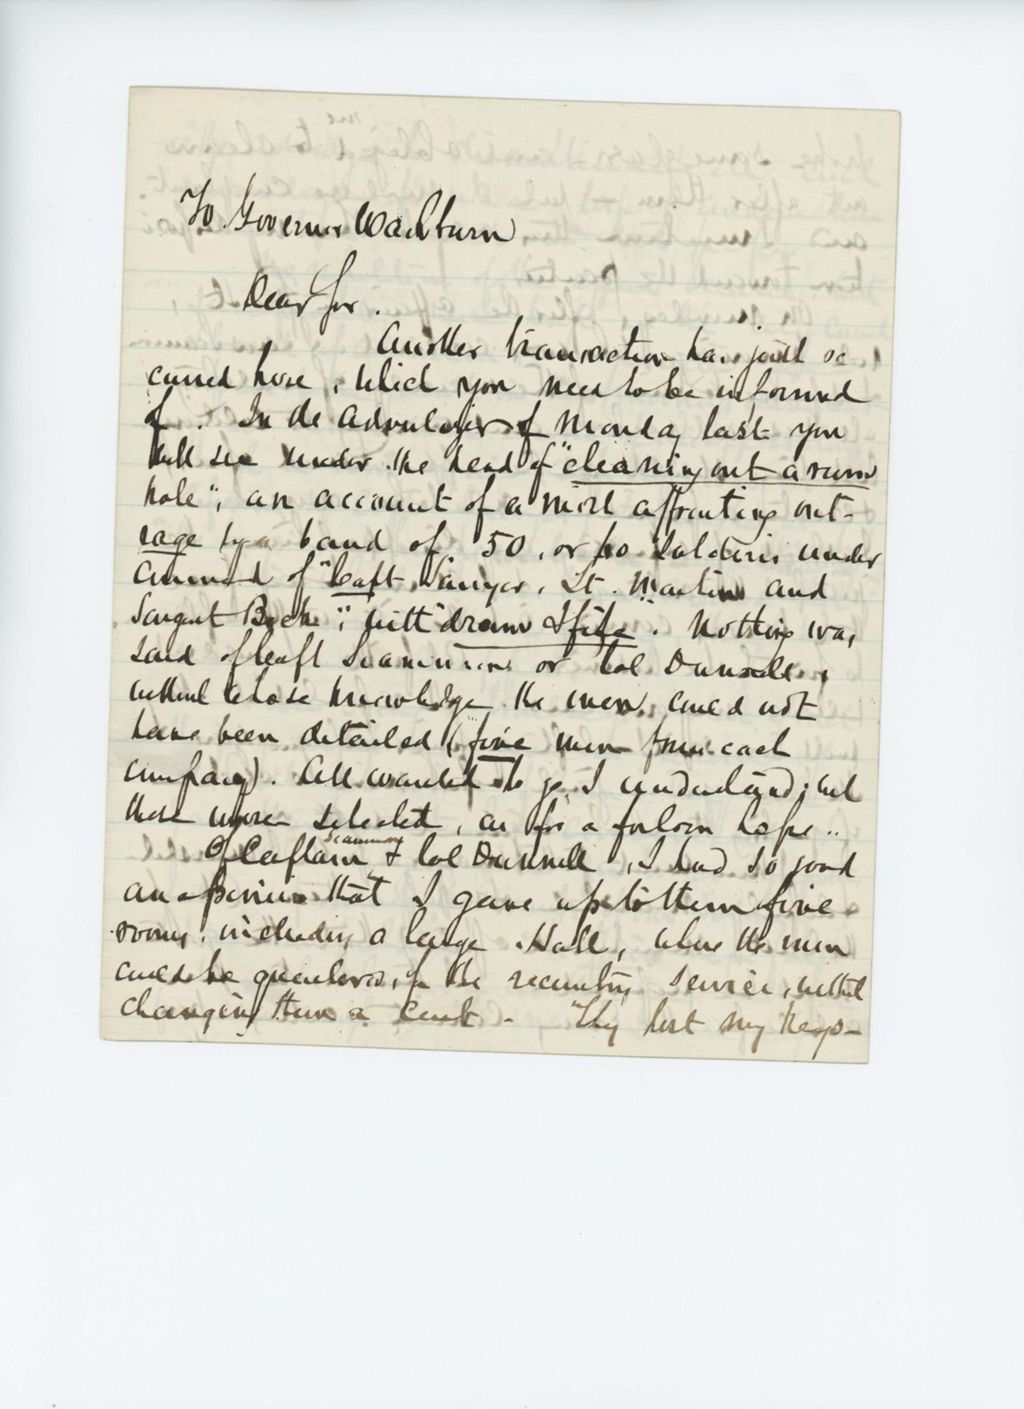 To Governor Washburn
Dear Sir.
Another transaction has just oc
curred here, which you need to be informed
of. In the Advertiser of Monday last you
will see under the head of "cleaning out a rum
hole", an account of a most affronting out-
rage by a band of 50, or 60 soldiers under
command of "Capt Sawyer, Lt. Martin and
Sargent Beck", with "drum & fife". Nothing was
said of Capt Scammon or Col Dunnell,
without whose knowledge the men could not
have been detailed (five men from each
company). All wanted to go, I understand; but
these were selected, as for a forlorn hope..
Of Captain Scammon & Col Dunnell, I had so good
an opinion that I gave up to them five
rooms, including a large Hall, where the men
could be quartered, for the recruiting service, without
charging them a cent. They lost my keys-